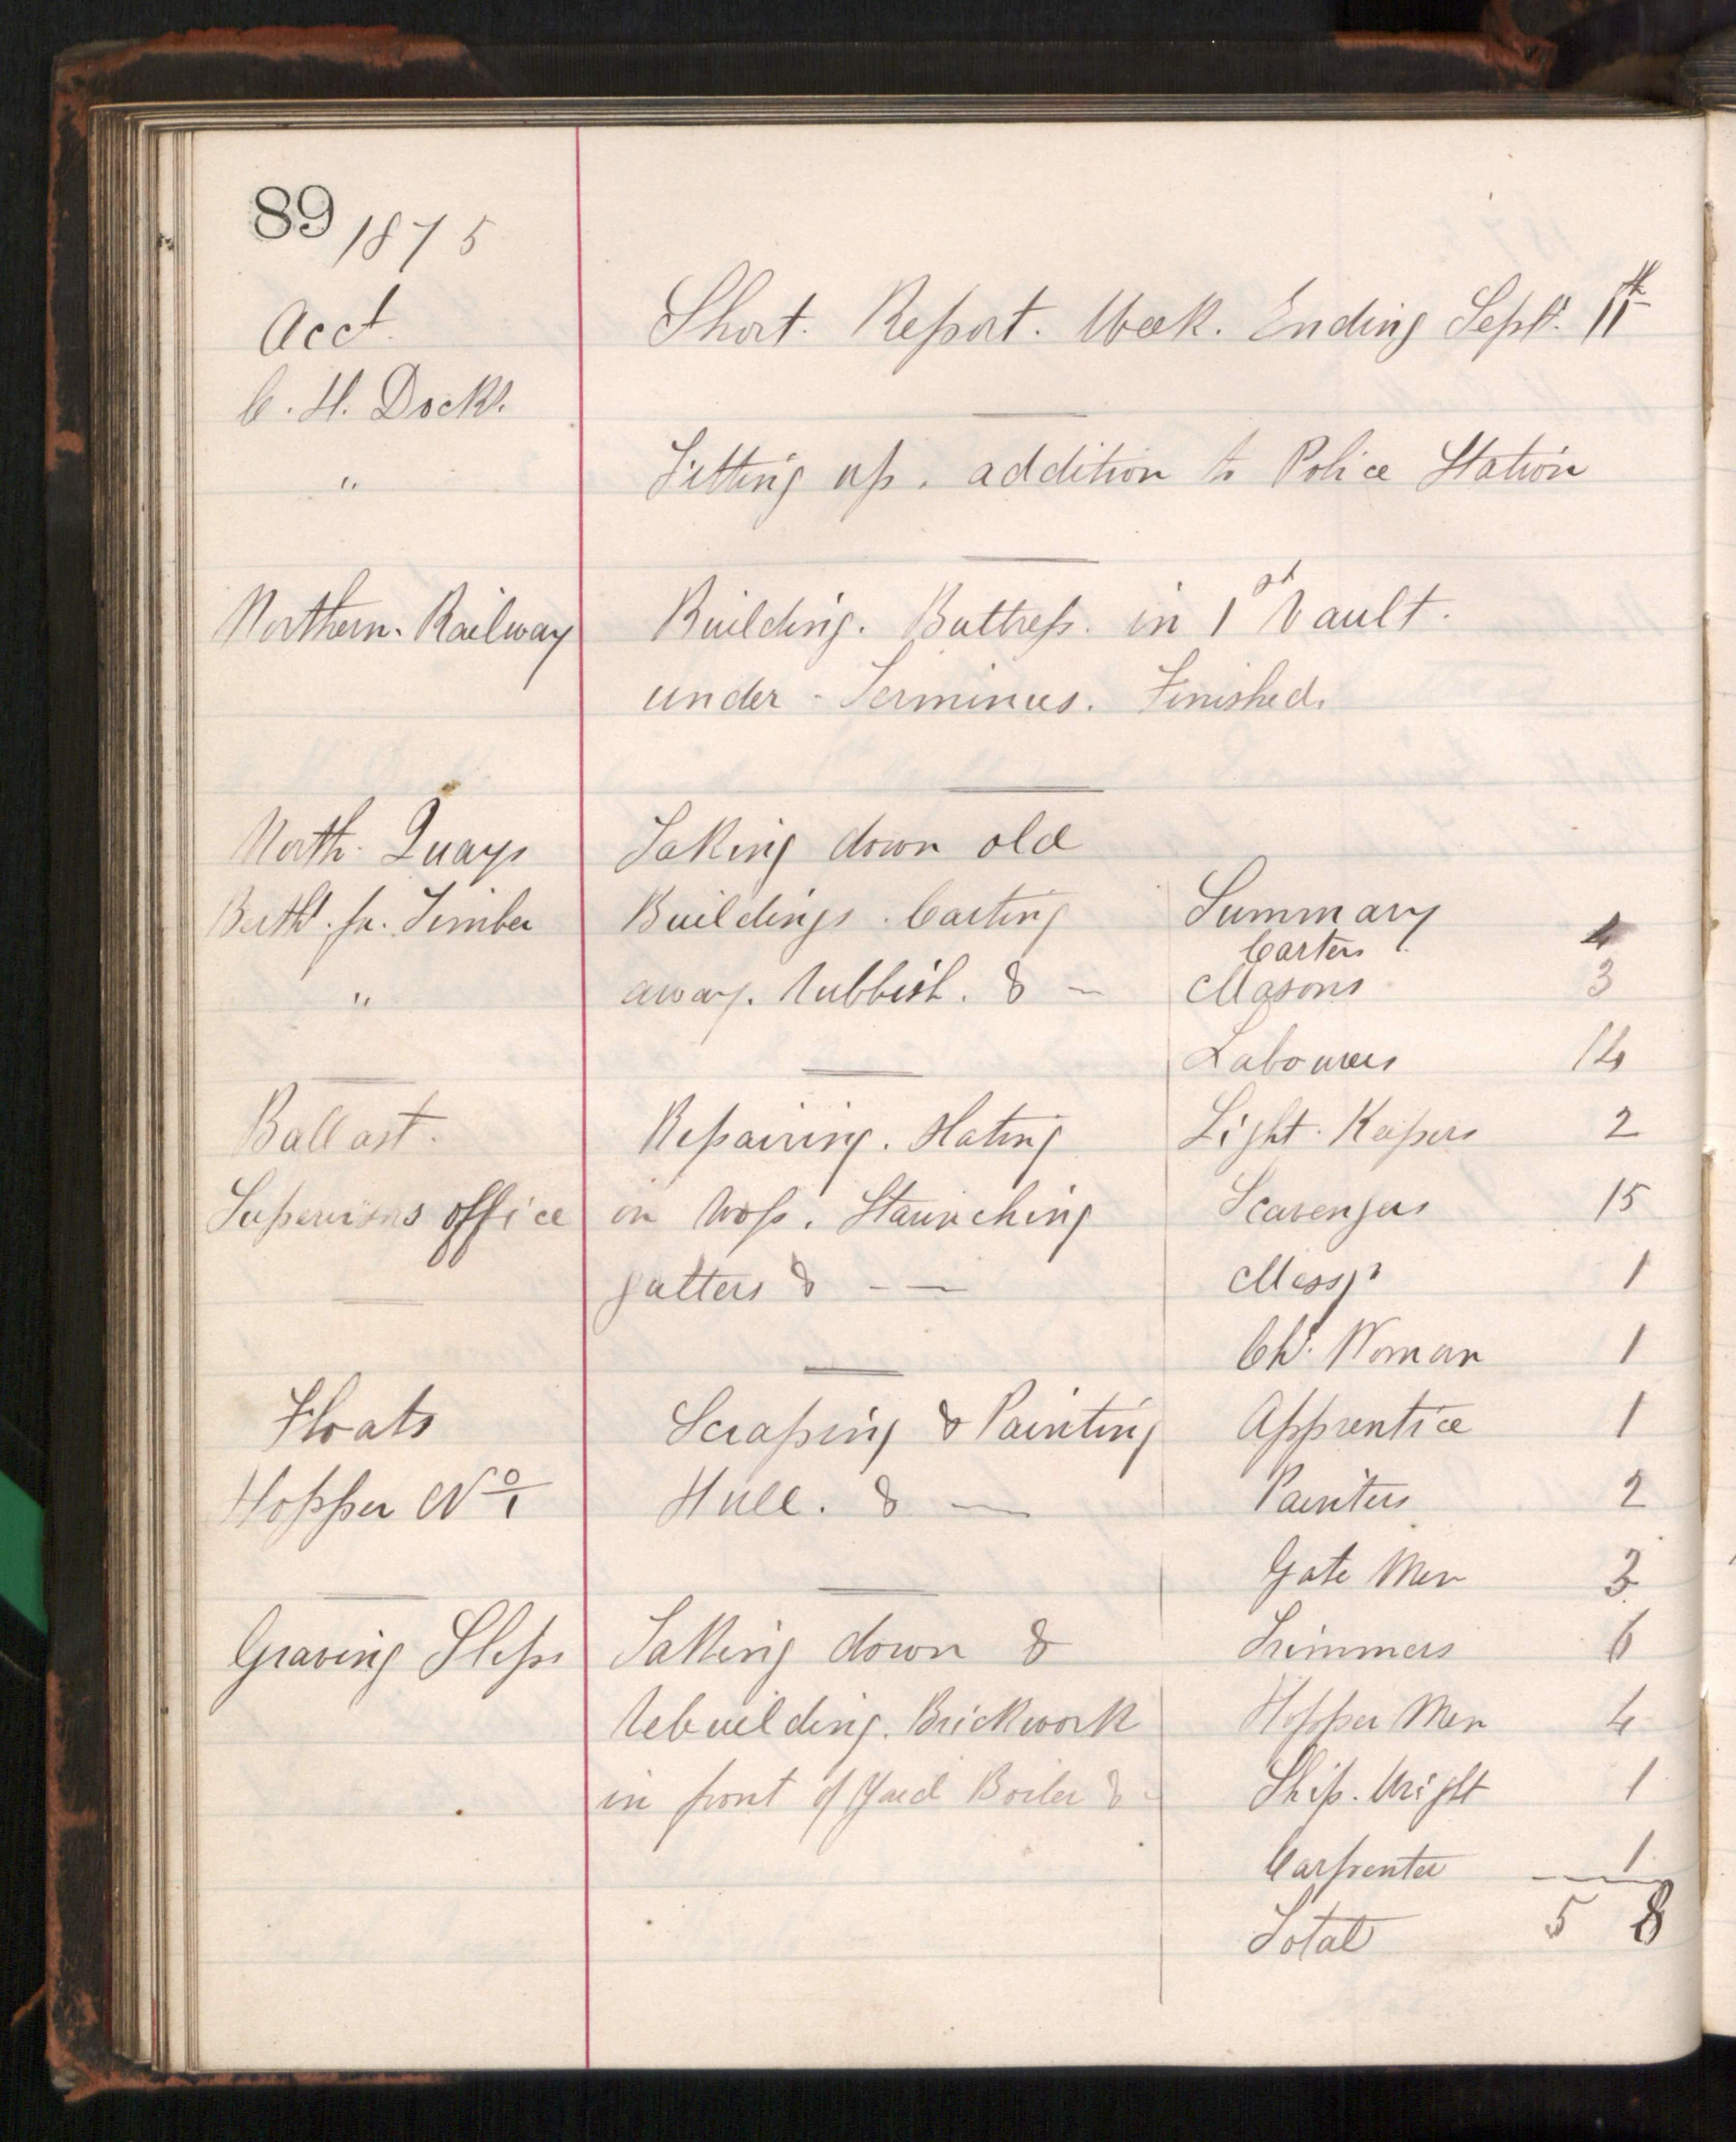 89 1875
Acct.
Short. Report. Week. Ending Sept. 11th
C. H. Docks.
" Fitting up. addition to Police Station
Northern. Railway Building. Buttress. in 1st Vault.
under - Terminus. Finished.
North. Quays Taking down old
Berth. for. Timber Buildings. Carting Summary
Carters 4
" away. rubbish. & — Masons 3
Labourers 14
Ballast. Repairing. Slating Light. Keepers 2
Supervisors office on roof. Staunching Scavengers 15
gutters & — — Messgr 1
Ch. Woman 1
Floats Scraping & Painting Apprentice 1
Hopper No 1 Hull. & — Painters 2
Gate Men 3
Graving Slips Taking down & Trimmers 6
rebuilding. Brickwork Hopper Men 4
in front of Yard Boiler & - Ship. Wright 1
Carpenter 1
Total 58